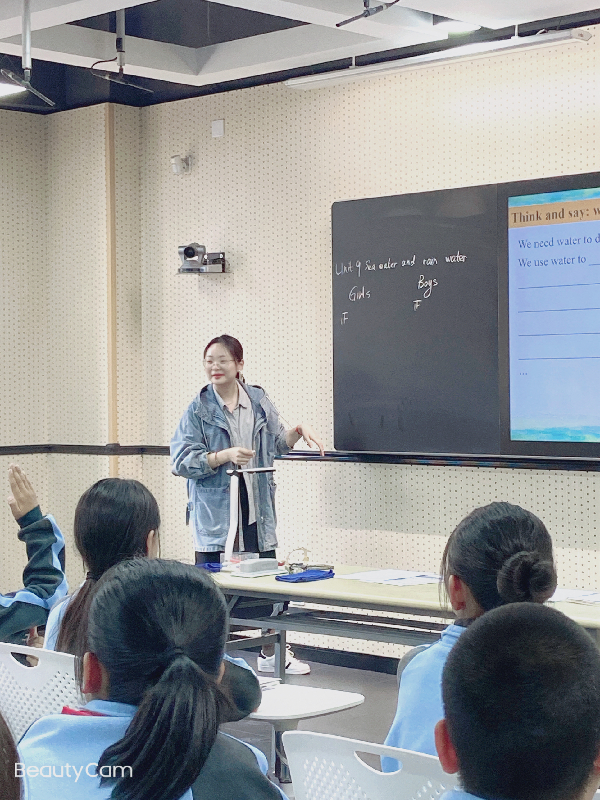 Unit 9 Sea water and rain water
Girls
Boys
正
正
Think and say:
We need water to
We use water to
...
BeautyCam